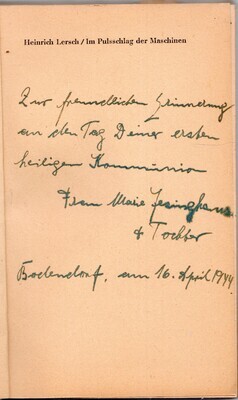 Heinrich Lersch / Im Pulsschlag der Maschinen
Zur freundlichen Erinnerung
an den Tag Deiner ersten
heiligen Kommunion
Frau Marie Jesinghaus
& Tochter
Bodendorf, am 16. April 1944